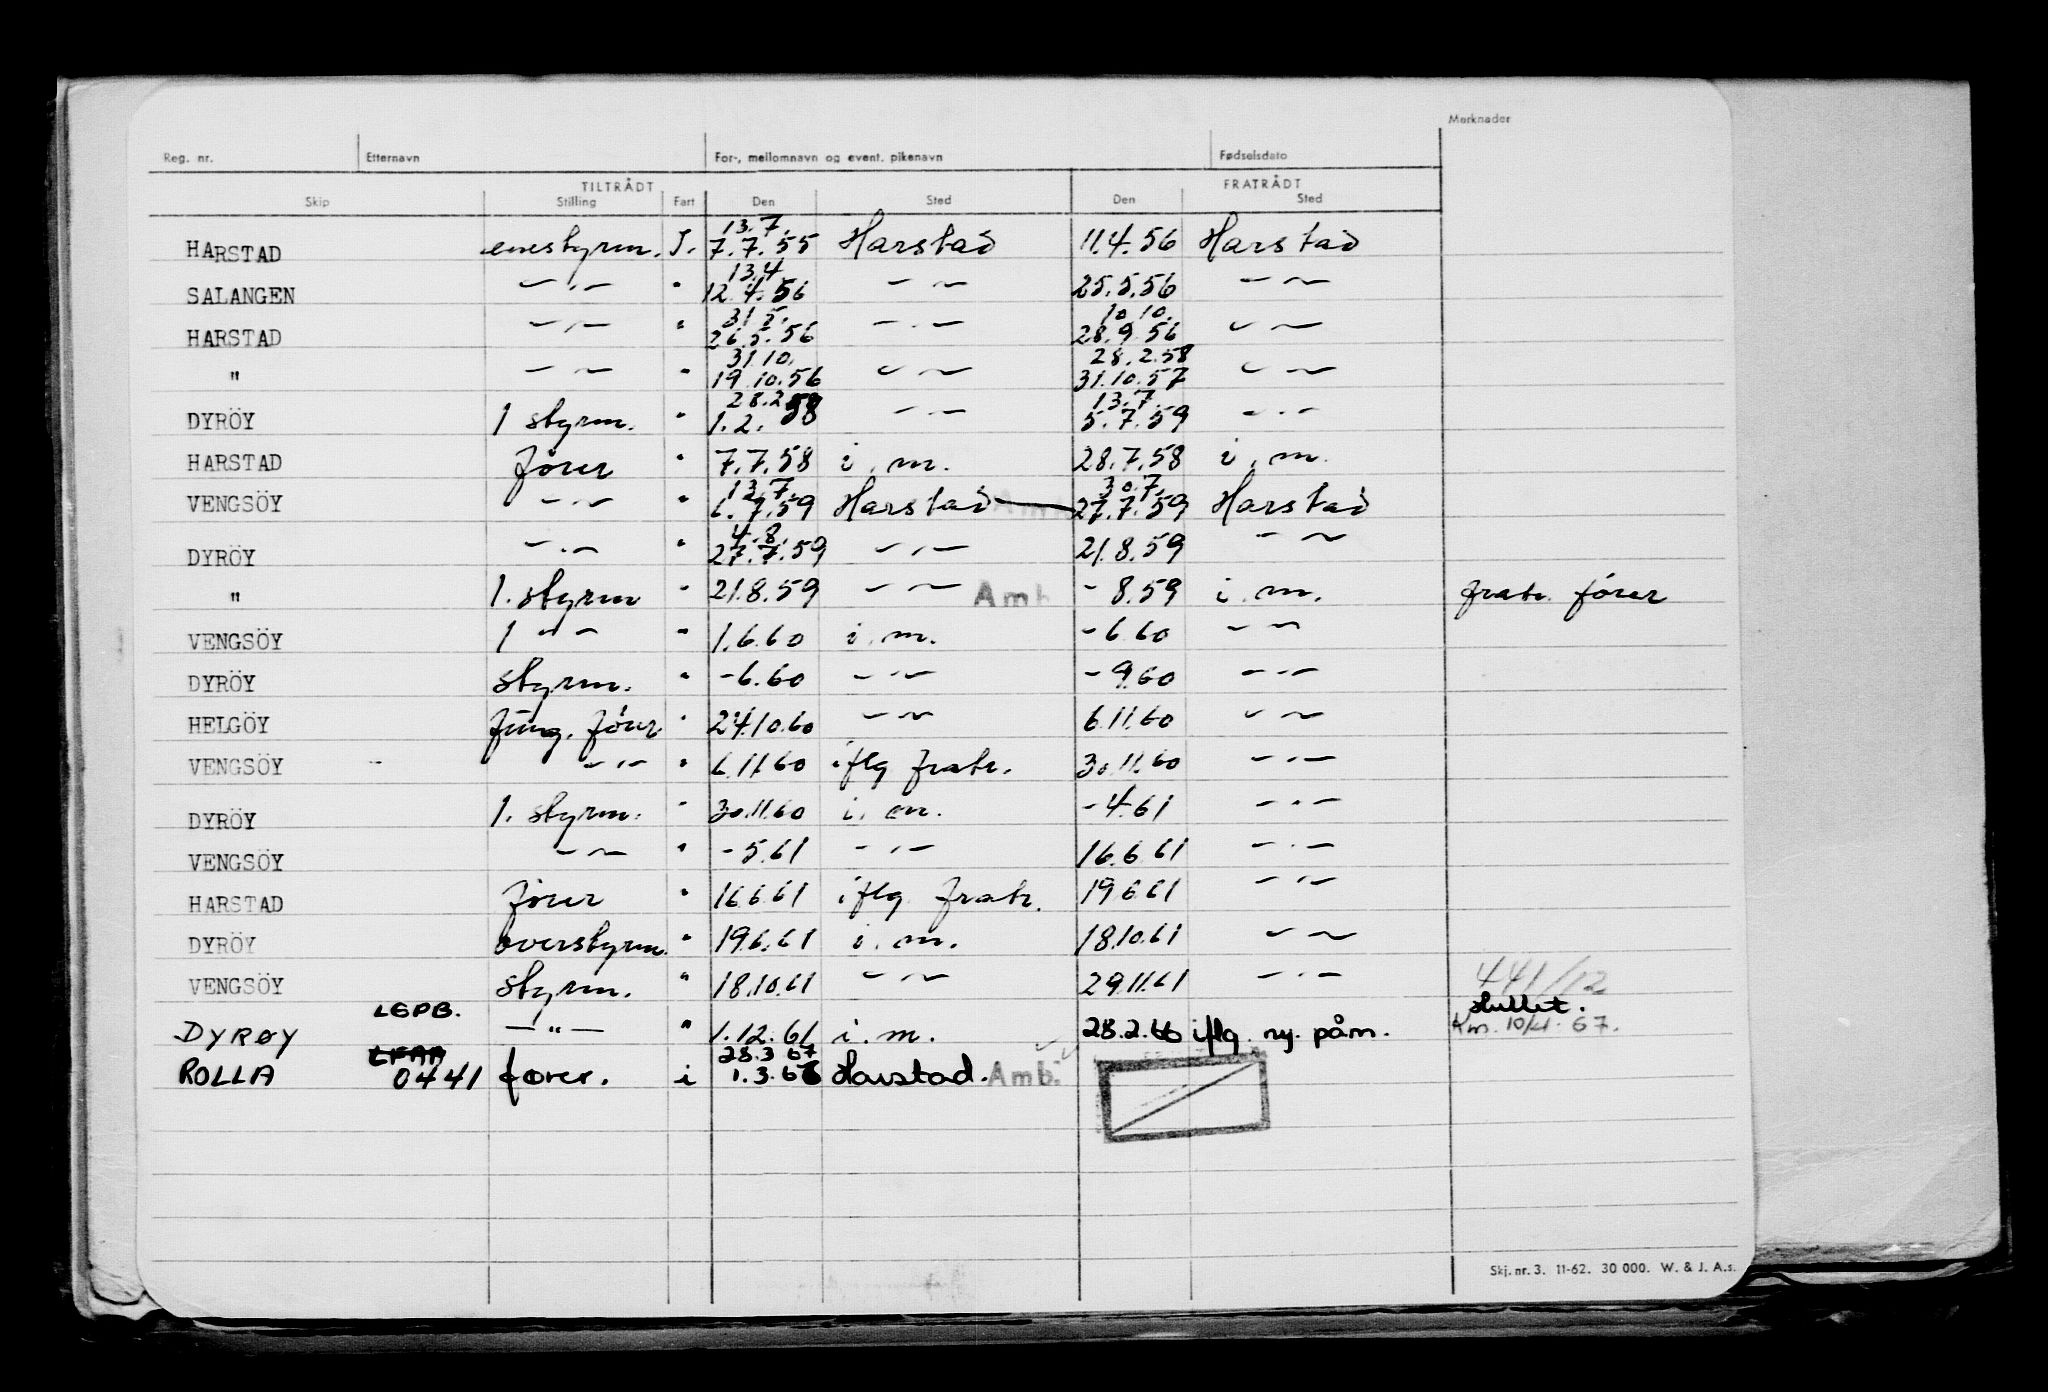 Merknader
Reg. nr. Etternavn For-, mellomnavn og event. pikenavn Fødselsdato
TILTRÅDT FRATRÅDT
Skip Stilling Fart Den Sted Den Sted
13.7.
HARSTAD enestyrm. I. 7.7.55 Harstad 11.4.56 Harstad
13.4
SALANGEN — " — " 12.4.56 — " — 25.5.56 — " —
31.5. 10.10.
HARSTAD — " — " 26.5.56 — " — 28.9.56 — " —
31.10. 28.2.58
" — " — " 19.10.56 — " — 31.10.57 — " —
28.2.58 13.7.
DYRÖY 1 styrm. " 1.2.58 — " — 5.7.59 — " —
HARSTAD förer " 7.7.58 i.m. 28.7.58 i.m.
13.7. 30.7.
VENGSÖY — " — " 6.7.59 Harstad 27.7.59 Harstad
4.8.
DYRÖY — " — " 27.7.59 — " — 21.8.59 — " —
" 1. styrm " 21.8.59 — " — Amb - 8.59 i.m. fratr. förer
VENGSÖY 1 — " — " 1.6.60 i.m. - 6.60 — " —
DYRÖY styrm. " - 6.60 — " — - 9.60 — " —
HELGÖY fung. förer " 24.10.60 — " — 6.11.60 — " —
VENGSÖY — " — " 6.11.60 iflg fratr. 30.11.60 — " —
DYRÖY 1. styrm. " 30.11.60 i.m. - 4.61 — " —
VENGSÖY — " — " - 5.61 — " — 16.6.61 — " —
HARSTAD förer " 16.6.61 iflg fratr. 19.6.61 — " —
DYRÖY overstyrm. " 19.6.61 i.m. 18.10.61 — " —
VENGSÖY styrm. " 18.10.61 — " — 29.11.61 — " — 441/12
LGPB. Hullet.
DYRØY — " — " 1.12.61 i.m. 28.2.66 iflg. ny. påm. Km. 10/4. 67.
LFAA 28.3 67
ROLLA 0441 fører. i 1.3.66 Harstad. Amb.
Skj. nr. 3. 11-62. 30 000. W. & J. A.s.